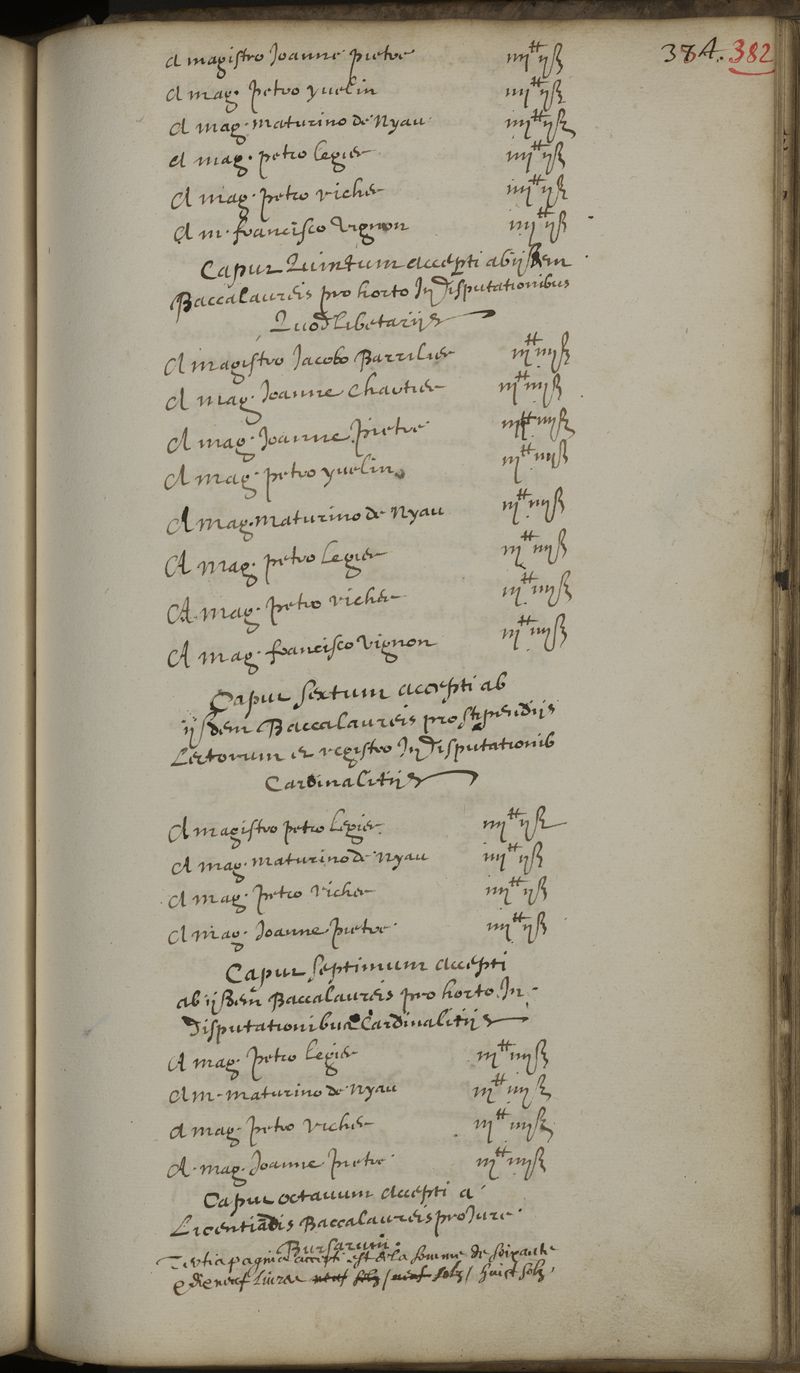 384. 382
A magistro Joanne pietre iiij# ijß
A mag. petro yuelin iiij# ijß
A mag. maturino de Nyau iiij# ijß
A mag. petro legier iiij# ijß
A mag. petro richer iiij# ijß
A m. francisco vignon iiij# ijß
Caput Quintum accepti ab ijsdem
Baccalaureis pro horto In disputationibus
Quodlibetarijs
A magistro Jacobo Barrilier iij# iiijß
A mag. Joanne Chartier iij# iiijß
A mag. Joanne pietre iij# iiijß
A mag. petro yuelin iij# iiijß
A mag. maturino de Nyau iij# iiijß
A mag. petro legier iij# iiijß
A mag. petro richer iij# iiijß
A mag. francisco vignon iij# iiijß
Caput sextum accepti ab
ijsdem Baccalaureis pro stipendijs
Lectorum et registro In disputationib
Cardinalitijs
A magistro petro legier iiij# ijß
A mag. maturino de Nyau iiij# ijß
A mag. petro richer iiij# ijß
A mag. Joanne pietre iiij# ijß
Caput septimum accepti
ab ijsdem Baccalaureis pro horto In
disputationibus Cardinalitijs
A mag. petro legier iij# iiijß
A m. maturino de Nyau iij# iiijß
A mag. petro richer iij# iiijß
A mag. Joanne pietre iij# iiijß
Caput octauum accepti a
Licentiadis Baccalaureis pro Jure
Bursarum.
Tertia pagina accepti est de la somme de soixante
& dieneuf liures neuf solz / neuf solz / huict solz